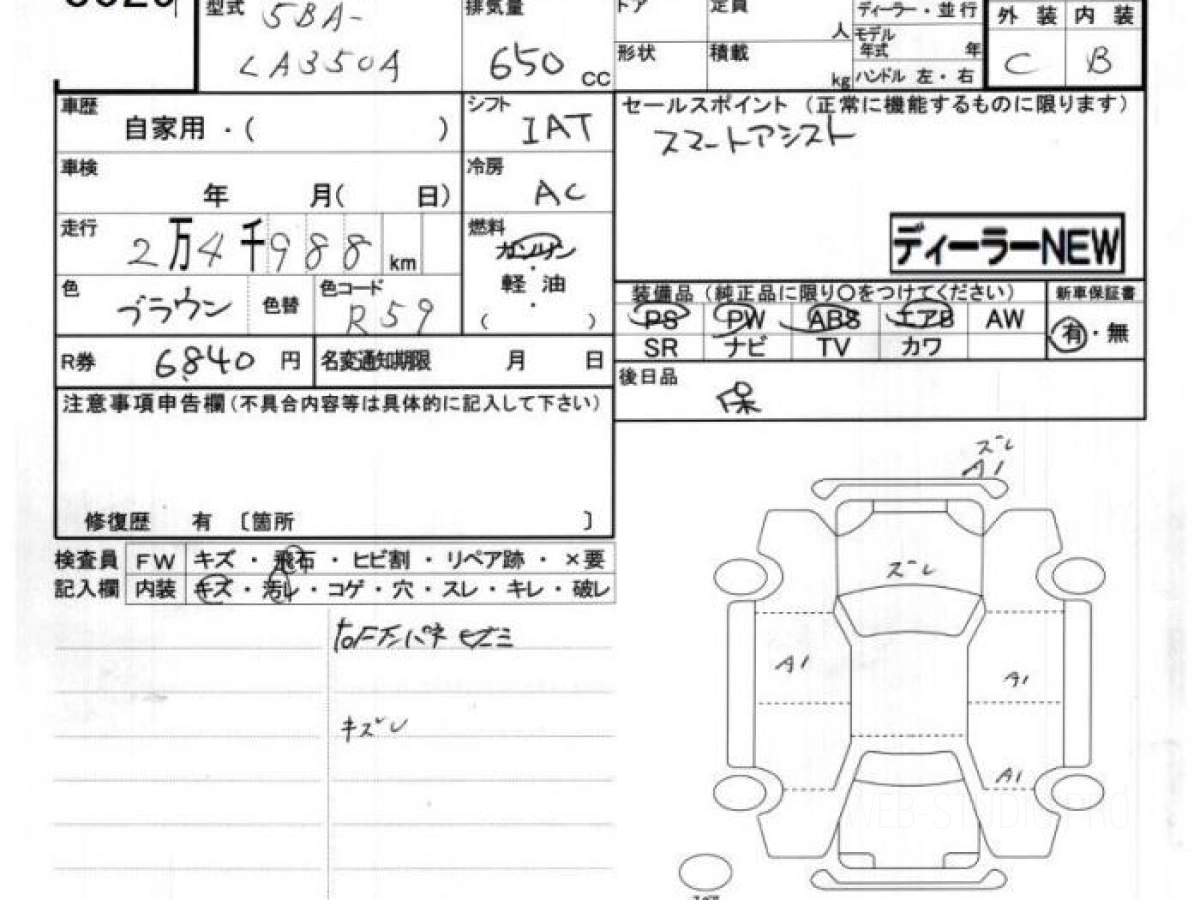 型式 5BA-
LA350A
排気量
650 CC
ドア
定員 人
形状
積載 kg
ディーラー・並行
モデル年式 年
ハンドル 左・右
外装 内装
C B
車歴
自家用・( )
シフト
IAT
車検
年 月( 日)
冷房
AC
走行
2万4千988 km
燃料
ガソリン
・
軽油
・
( )
色
ブラウン
色替
色コード
R59
R券 6840 円
名変通知期限 月 日
セールスポイント(正常に機能するものに限ります)
スマートアシスト
ディーラーNEW
装備品(純正品に限り○をつけてください)
新車保証書
PS PW ABS エアB AW
有・無
SR ナビ TV カワ
後日品
保
注意事項申告欄(不具合内容等は具体的に記入して下さい)
修復歴 有 〔箇所 〕
検査員 FW キズ・飛石・ヒビ割・リペア跡・×要
記入欄 内装 キズ・汚レ・コゲ・穴・スレ・キレ・破レ
キズレ
ズレ
A1
ズレ
A1
A1
A1
WEB-STUDIO PRO